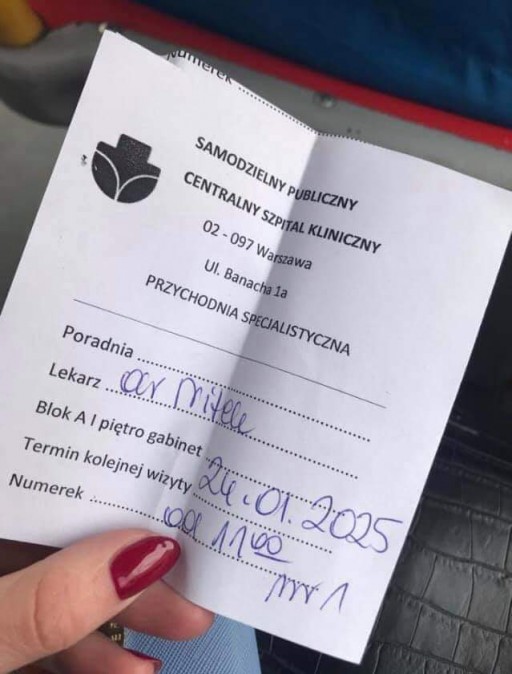 Numerek ..........
SAMODZIELNY PUBLICZNY
CENTRALNY SZPITAL KLINICZNY
02 - 097 Warszawa
Ul. Banacha 1a
PRZYCHODNIA SPECJALISTYCZNA
Poradnia ..........
Lekarz .......... dr
Blok A I piętro gabinet ..........
Termin kolejnej wizyty .......... 24.01.2025
Numerek .......... od 11 00
nr 1